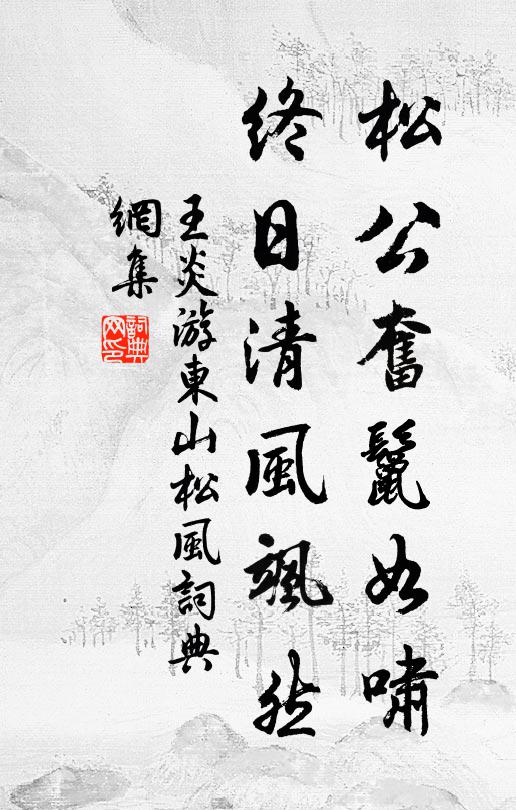 松公奮鬣如嘯
終日清風颯然
王炎游東山松風詞典
網集
詞典網印